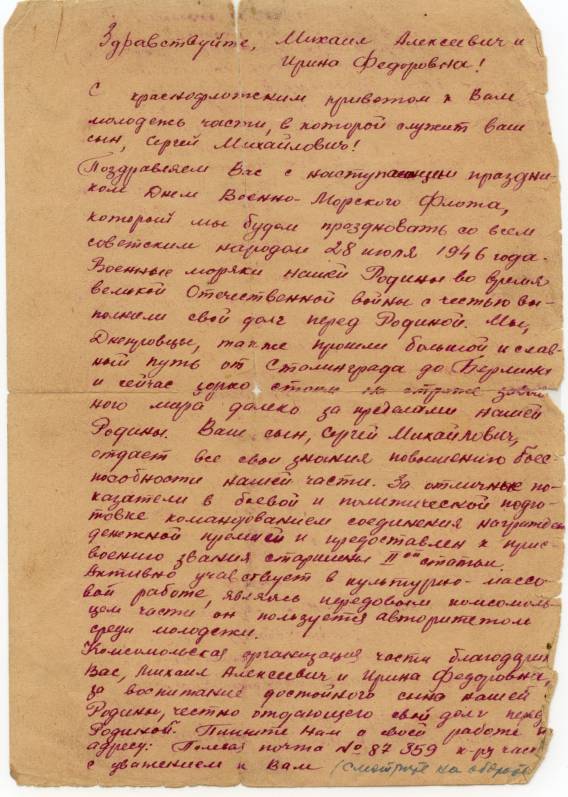 Здравствуйте, Михаил Алексеевич и
Ирина Федоровна!
С краснофлотским приветом к Вам
молодежь части, в которой служит ваш
сын, Сергей Михайлович!
Поздравляем Вас с наступающим праздни-
ком Днем Военно-Морского Флота,
который мы будем праздновать со всем
советским народом 28 июля 1946 года.
Военные моряки нашей Родины во время
великой Отечественной войны с честью вы-
полнили свой долг перед Родиной. Мы,
Днепровцы, также прошли большой и слав-
ный путь от Сталинграда до Берлина
и сейчас зорко стоим на страже завоёван-
ного мира далеко за пределами нашей
Родины. Ваш сын, Сергей Михайлович,
отдает все свои знания повышению боес-
пособности нашей части. За отличные по-
казатели в боевой и политической подго-
товке командованием соединения награжден
денежной премией и предоставлен к прис-
воению звания старшины II ой статьи.
Активно учавствует в культурно-массо-
вой работе, являясь передовым комсомоль-
цем части он пользуется авторитетом
среди молодежи.
Комсомольская организация части благодарит
Вас, Михаил Алексеевич и Ирина Федоровна,
за воспитание достойного сына нашей
Родины, честно отдающего свой долг перед
Родиной. Пишите нам о своей работе по
адресу: Полевая почта № 87359 к-ру части
с уважением к Вам (смотрите на обороте